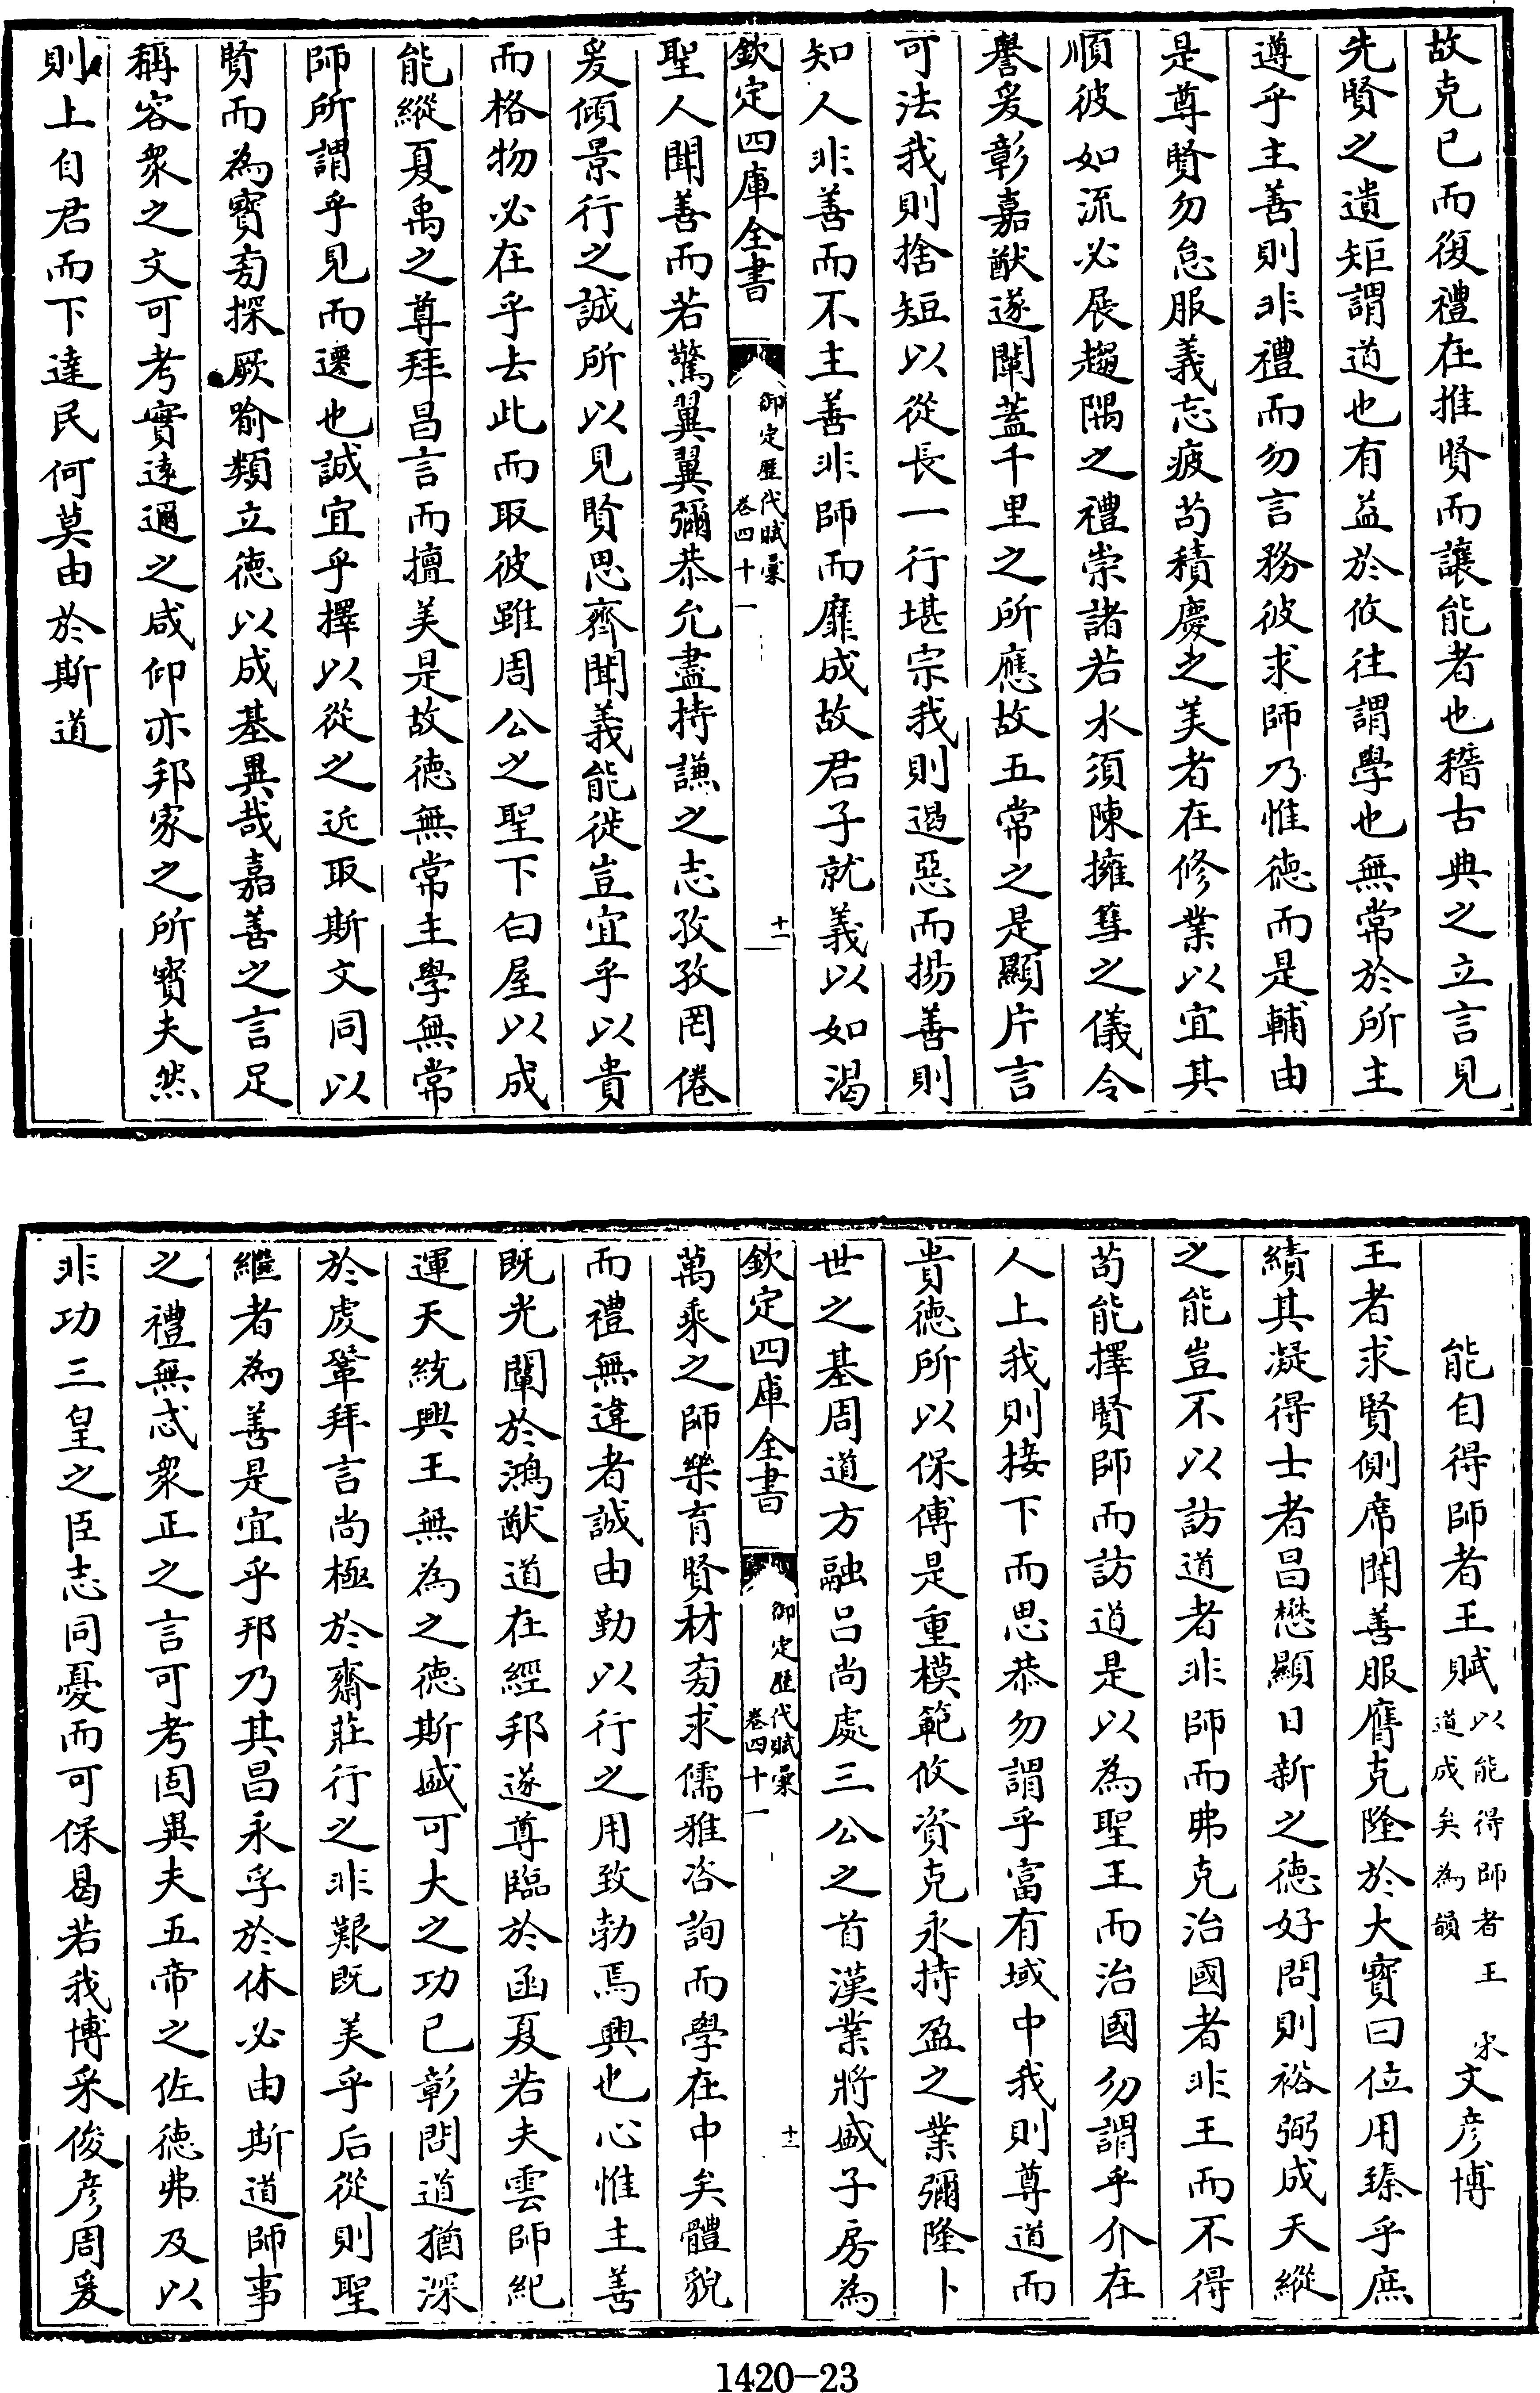 故克已而復禮在推賢而讓能者也稽古典之立言見
先賢之遺矩謂道也有益於攸往謂學也無常於所主
遵乎主善則非禮而勿言務彼求師乃惟徳而是輔由
是尊賢勿怠服義忘疲苟積慶之美者在修業以宜其
順彼如流必展趨隅之禮崇諸若水須陳擁篲之儀令
譽爰彰嘉猷遂闡蓋千里之所應故五常之是顯片言
可法我則捨短以從長一行堪宗我則遏惡而揚善則
知人非善而不主善非師而靡成故君子就義以如渴
欽定四庫全書
御定歴代賦彙
卷四十一
十一
聖人聞善而若驚翼翼彌恭允盡持謙之志孜孜罔倦
爰傾景行之誠所以見賢思齊聞義能徙豈宜乎以貴
而格物必在乎去此而取彼雖周公之聖下白屋以成
能縱夏禹之尊拜昌言而擅美是故徳無常主學無常
師所謂乎見而遷也誠宜乎擇以從之近取斯文同以
賢而為寳旁探厥喻類立徳以成基異哉嘉善之言足
稱容衆之文可考實遠邇之咸仰亦邦家之所寳夫然
則上自君而下達民何莫由於斯道
能自得師者王賦以能得師者王道成矣為韻 宋文彦博
王者求賢側席聞善服膺克隆於大寳曰位用臻乎庶
績其凝得士者昌懋顯日新之徳好問則裕弼成天縱
之能豈不以訪道者非師而弗克治國者非王而不得
苟能擇賢師而訪道是以為聖王而治國勿謂乎介在
人上我則接下而思恭勿謂乎富有域中我則尊道而
貴徳所以保傅是重模範攸資克永持盈之業彌隆卜
世之基周道方融吕尚處三公之首漢業將盛子房為
欽定四庫全書
御定歴代賦彙
卷四十一
十二
萬乘之師樂育賢材旁求儒雅咨詢而學在中矣體貌
而禮無違者誠由勤以行之用致勃焉興也心惟主善
既光闡於鴻猷道在經邦遂尊臨於函夏若夫雲師紀
運天統興王無為之徳斯盛可大之功已彰問道猶深
於虔鞏拜言尚極於齋莊行之非艱既美乎后從則聖
繼者為善是宜乎邦乃其昌永孚於休必由斯道師事
之禮無忒衆正之言可考固異夫五帝之佐徳弗及以
非功三皇之臣志同憂而可保曷若我博采俊彦周爰
1420-23